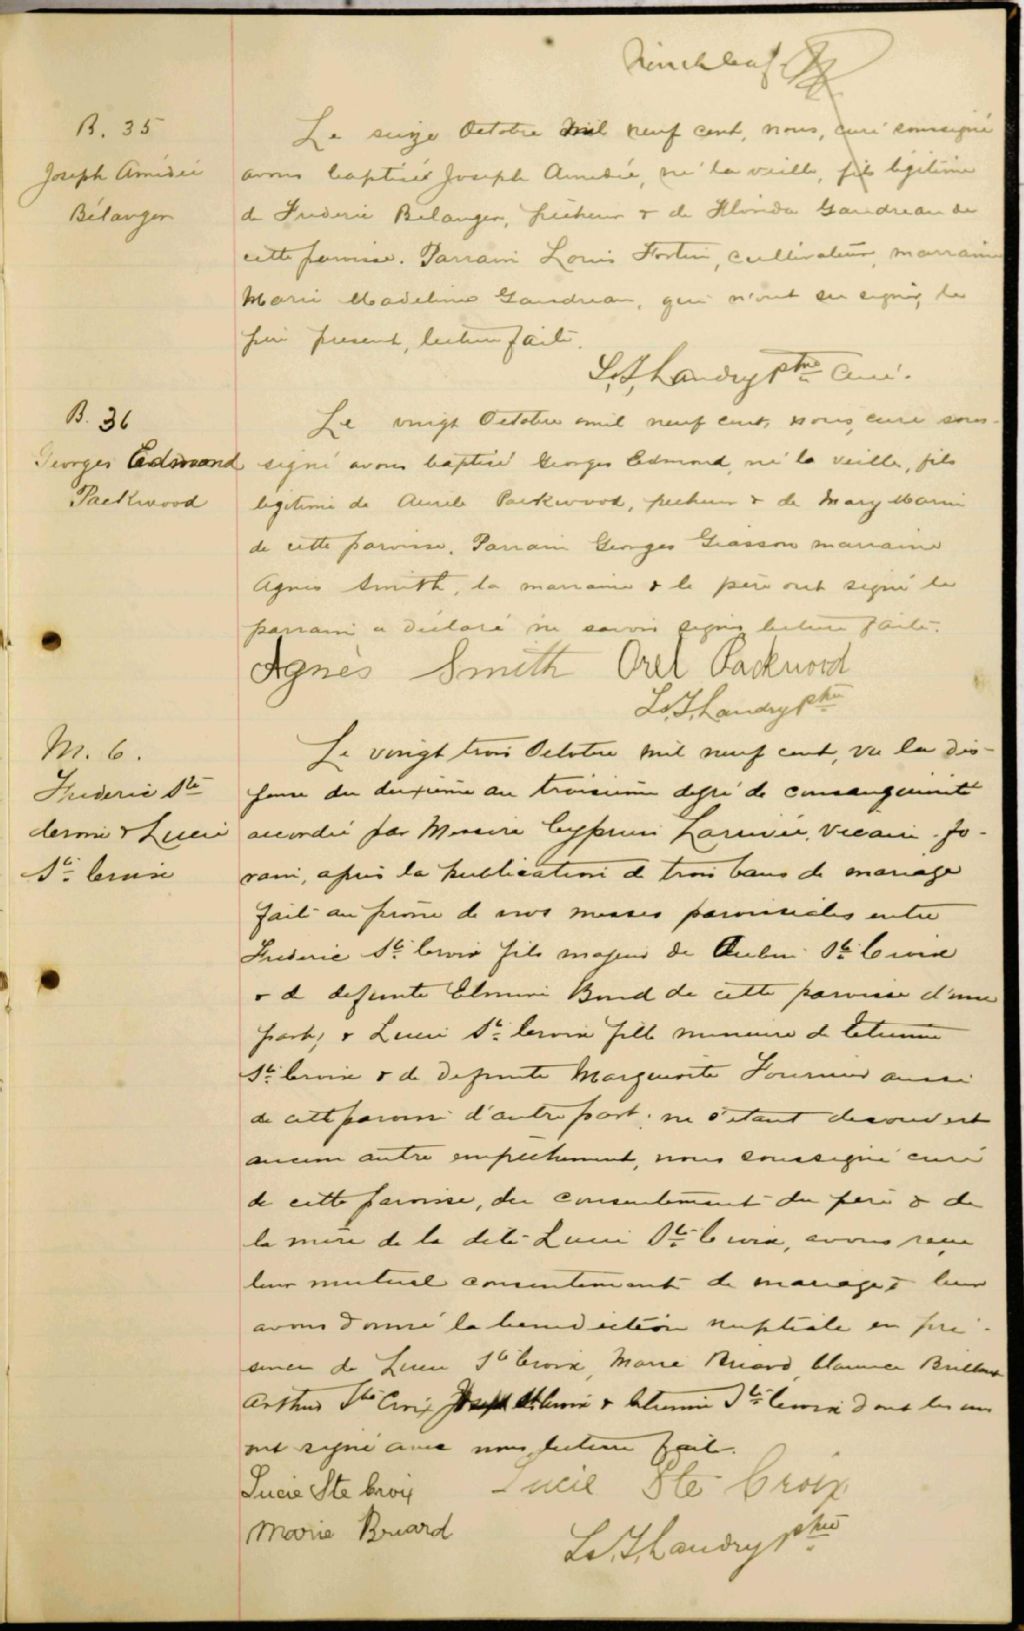 B. 35
Joseph Amédée
Bélanger
Le seize Octobre mil neuf cent, nous, curé soussigné
avons baptisé Joseph Amédée, né la veille, fils légitime
de Frederic Belanger, pêcheur & de Florida Gaudreau de
cette paroisse. Parrain Louis Fortin, cultivateur, marraine
Marie Madeline Gaudreau, qui n'ont su signer, le
père present, lecture faite.
Ls. J. Landry ptre Curé.
B. 36
Georges Edmond
Packwood
Le vingt Octobre mil neuf cent, nous, curé sous-
signé avons baptisé Georges Edmond, né la veille, fils
légitime de Aurele Packwood, pecheur & de Mary Morin
de cette paroisse. Parrain Georges Giasson marraine
Agnes Smith, la marraine & le père ont signé le
parrain a déclaré ne savoir signer lecture faite.
Agnès Smith Orel Packwood
Ls. J. Landry ptre
M. 6.
Frederic Ste
Croix & Lucie
Ste Croix
Le vingt trois Octobre mil neuf cent, vu la dis-
pense du deuxième au troisième degré de consanguinité
accordée par Messire Cyprien Larrivée, Vicaire-fo-
rain, après la publication de trois bans de mariage
faite au prône de nos messes paroissiales entre
Frederic Ste Croix fils majeur de Aubin Ste Croix
& de defunte Elmire Bond de cette paroisse d'une
part, & Lucie Ste Croix fille mineure de Etienne
Ste Croix & de Defunte Marguerite Fournier aussi
de cette paroisse d'autre part; ne s'étant decouvert
aucun autre empêchement, nous soussigné curé
de cette paroisse, du consentement du père & de
la mère de la dite Lucie Ste Croix, avons reçu
leur mutuel consentement de mariage & leur
avons donné la benediction nuptiale en pré-
sence de Lucie Ste Croix, Marie Briard, Clarence Brillant
Arthur Ste Croix Joseph Ste Croix & Etienne Ste Croix dont les uns
ont signé avec nous, lecture faite.
Lucie Ste Croix Lucie Ste Croix
Marie Briard
Ls. J. Landry ptre